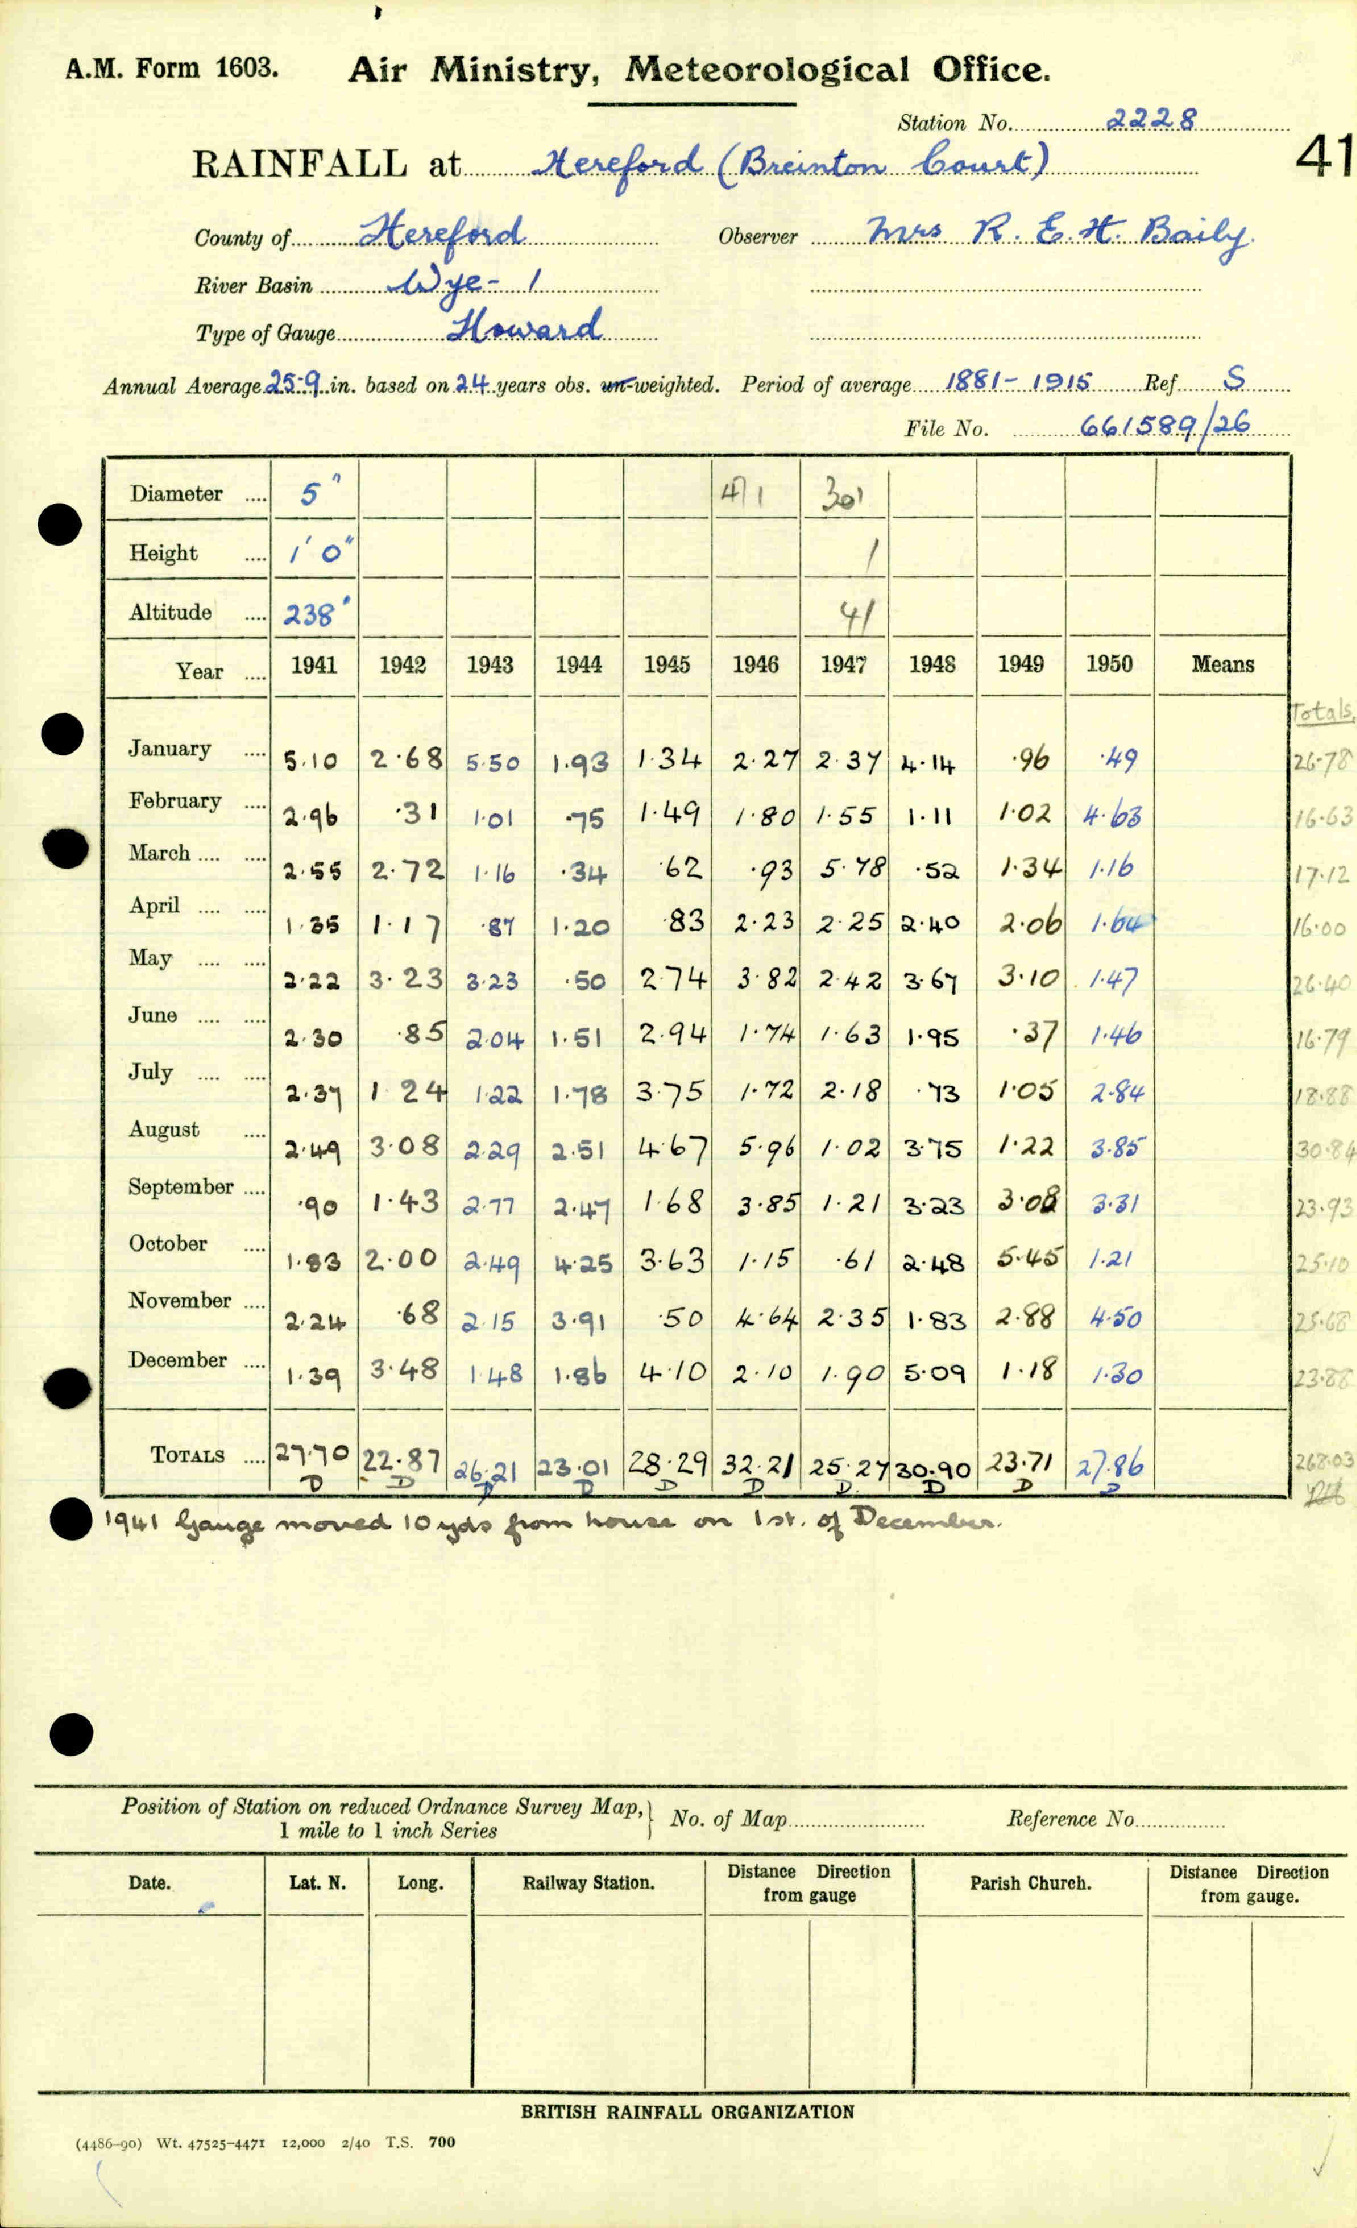 A.M. Form 1603. Air Ministry, Meteorological Office.
Station No. 2228
RAINFALL at Hereford (Breinton Court) 41
County of Hereford Observer Mrs R. E. H. Baily.
River Basin Wye - 1
Type of Gauge Howard
Annual Average 25.9 in. based on 24 years obs. un-weighted. Period of average 1881 - 1915 Ref S
File No. 661589/26
Diameter .... 5" 41 301
Height .... 1' 0" 1
Altitude .... 238' 41
Year .... 1941 1942 1943 1944 1945 1946 1947 1948 1949 1950 Means
Totals.
January .... 5.10 2.68 5.50 1.93 1.34 2.27 2.37 4.14 .96 .49 26.78
February .... 2.96 .31 1.01 .75 1.49 1.80 1.55 1.11 1.02 4.63 16.63
March .... .... 2.55 2.72 1.16 .34 .62 .93 5.78 .52 1.34 1.16 17.12
April .... .... 1.35 1.17 .87 1.20 .83 2.23 2.25 2.40 2.06 1.64 16.00
May .... .... 2.22 3.23 3.23 .50 2.74 3.82 2.42 3.67 3.10 1.47 26.40
June .... .... 2.30 .85 2.04 1.51 2.94 1.74 1.63 1.95 .37 1.46 16.79
July .... .... 2.37 1 24 1.22 1.78 3.75 1.72 2.18 .73 1.05 2.84 18.88
August .... 2.49 3.08 2.29 2.51 4.67 5.96 1.02 3.75 1.22 3.85 30.84
September .... .90 1.43 2.77 2.47 1.68 3.85 1.21 3.23 3.08 3.31 23.93
October .... 1.83 2.00 2.49 4.25 3.63 1.15 .61 2.48 5.45 1.21 25.10
November .... 2.24 .68 2.15 3.91 .50 4.64 2.35 1.83 2.88 4.50 25.68
December .... 1.39 3.48 1.48 1.86 4.10 2.10 1.90 5.09 1.18 1.30 23.88
TOTALS .... 27.70 22.87 26.21 23.01 28.29 32.21 25.27 30.90 23.71 27.86 268.03
D D D D D D D D D D
1941 Gauge moved 10 yds from house on 1st. of December.
Position of Station on reduced Ordnance Survey Map, No. of Map Reference No.
1 mile to 1 inch Series
Date. Lat. N. Long. Railway Station. Distance Direction from gauge Parish Church. Distance Direction from gauge.
BRITISH RAINFALL ORGANIZATION
(4486-90) Wt. 47525-4471 12,000 2/40 T.S. 700